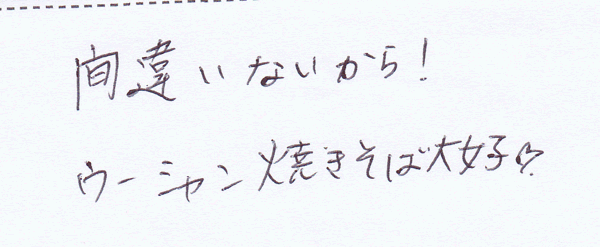 間違いないから!
ウーシャン焼きそば大好♡